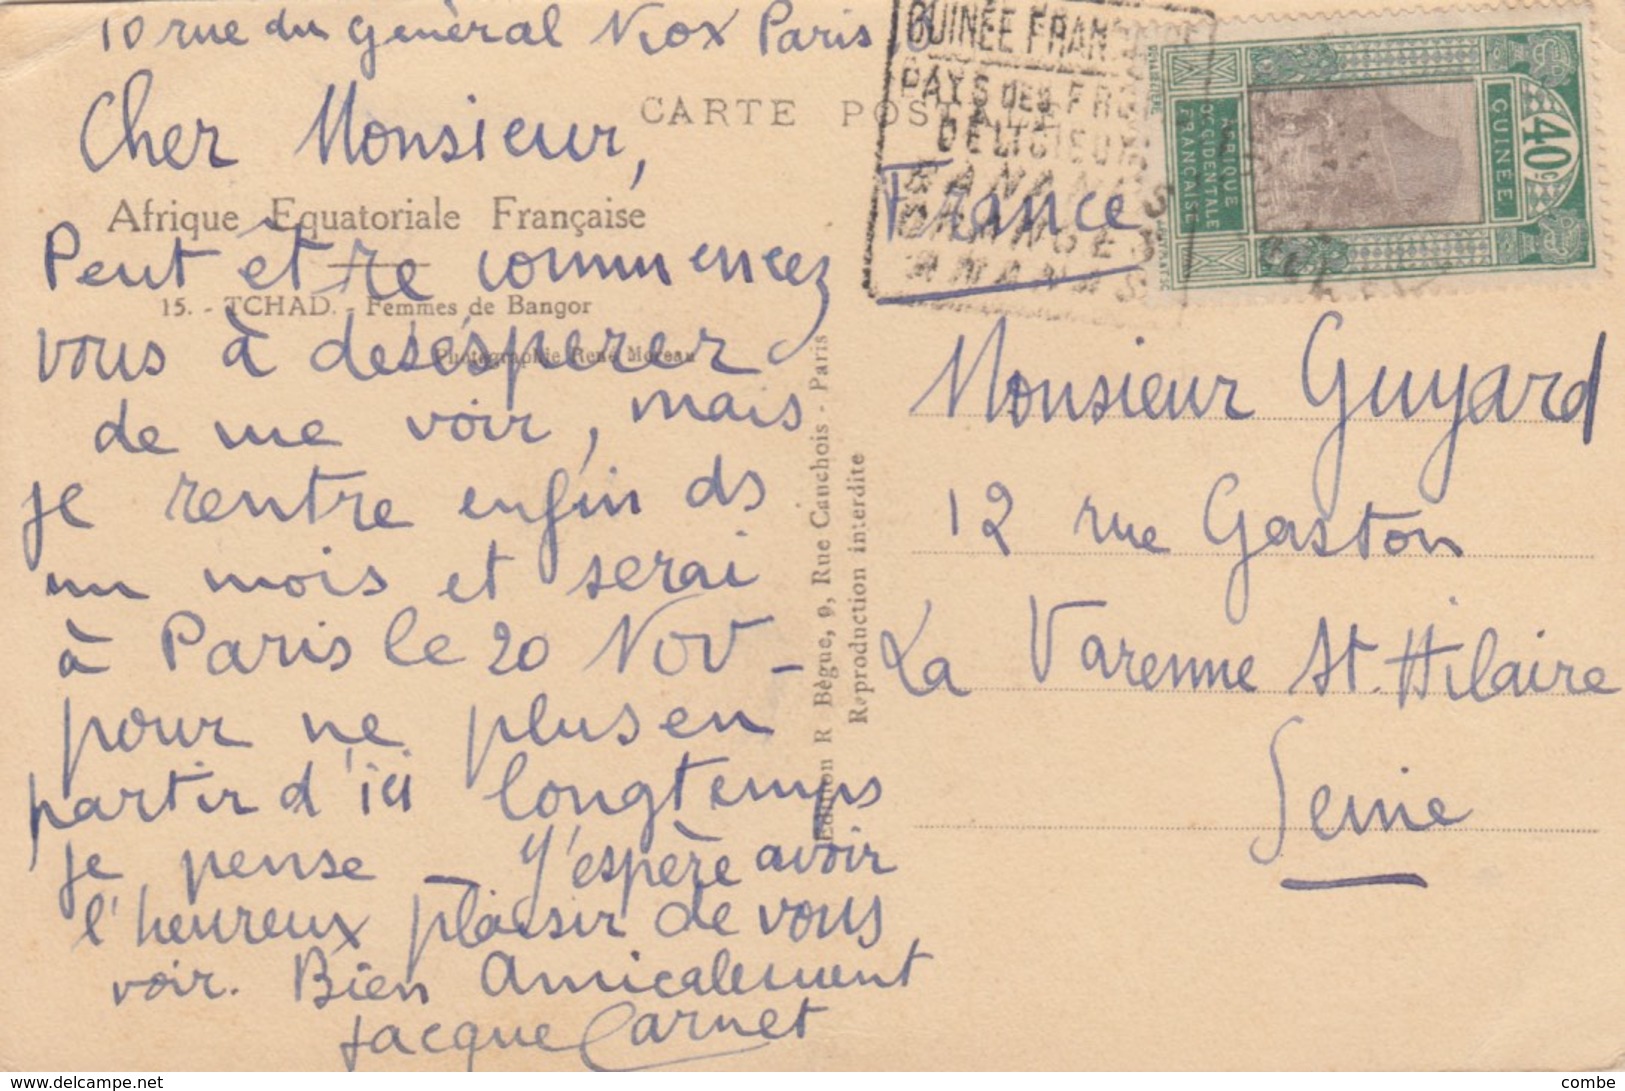 10 rue du Général Niox Paris 16
Cher Monsieur,
Peut être commencez
vous à desésperer
de me voir, mais
je rentre enfin ds
un mois et serai
à Paris le 20 Nov -
pour ne plus en
partir d'ici longtemps
je pense - J'espère avoir
l'heureux plaisir de vous
voir. Bien Amicalement
Jacque Carnet
CARTE POSTALE
Afrique Equatoriale Française
15. - TCHAD. - Femmes de Bangor
Photographie René Moreau
Edition R Bègue, 9, Rue Cauchois - Paris
Reproduction interdite
GUINÉE FRANÇAISE
PAYS DES FRUITS
DÉLICIEUX
BANANES
ORANGES
ANANAS
GUINÉE
40c
AFRIQUE
OCCIDENTALE
FRANÇAISE
France
Monsieur Guyard
12 rue Gaston
La Varenne St. Hilaire
Seine
www.delcampe.net
combe